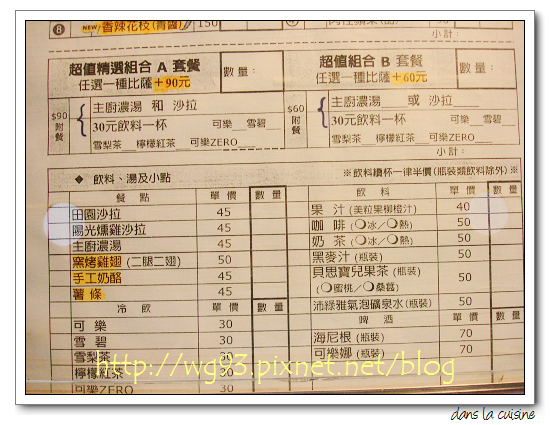 ⑧ NEW 香辣花枝(青醬) 150
小計:
超值精選組合 A 套餐
任選一種比薩+90元
數量:
$90附餐
主廚濃湯 和 沙拉
30元飲料一杯 可樂 雪碧
雪梨茶 檸檬紅茶 可樂ZERO
超值組合 B 套餐
任選一種比薩+60元
數量:
$60附餐
主廚濃湯 或 沙拉
30元飲料一杯 可樂 雪碧
雪梨茶 檸檬紅茶 可樂ZERO
小計:
◆ 飲料、湯及小點
※飲料續杯一律半價(瓶裝類飲料除外)※
餐點 單價 數量
田園沙拉 45
陽光燻雞沙拉 45
主廚濃湯 45
窯烤雞翅(二腿二翅) 50
手工奶酪 45
薯條 45
冷飲 單價 數量
可樂 30
雪碧 30
雪梨茶 30
檸檬紅茶 30
可樂ZERO 30
飲料 單價 數量
果汁(美粒果柳橙汁) 40
咖啡(○冰/○熱) 50
奶茶(○冰/○熱) 50
黑麥汁(瓶裝) 50
貝思寶兒果茶(瓶裝)
(○蜜桃/○桑葚) 50
沛綠雅氣泡礦泉水(瓶裝) 50
啤酒 單價 數量
海尼根(瓶裝) 70
可樂娜(瓶裝) 70
http://wg83.pixnet.net/blog
dans la cuisine